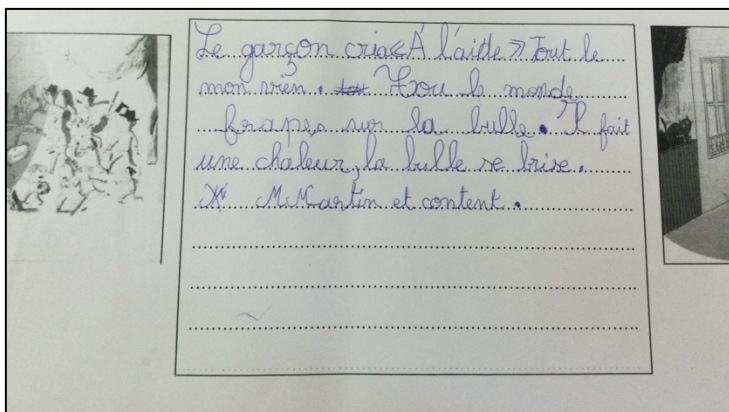 Le garçon cria « À l'aide » Tout le
mon vien. Tou le monde
frapes sur la bulle. Il fait
une chaleur, la bulle se brise.
M Martin et content.